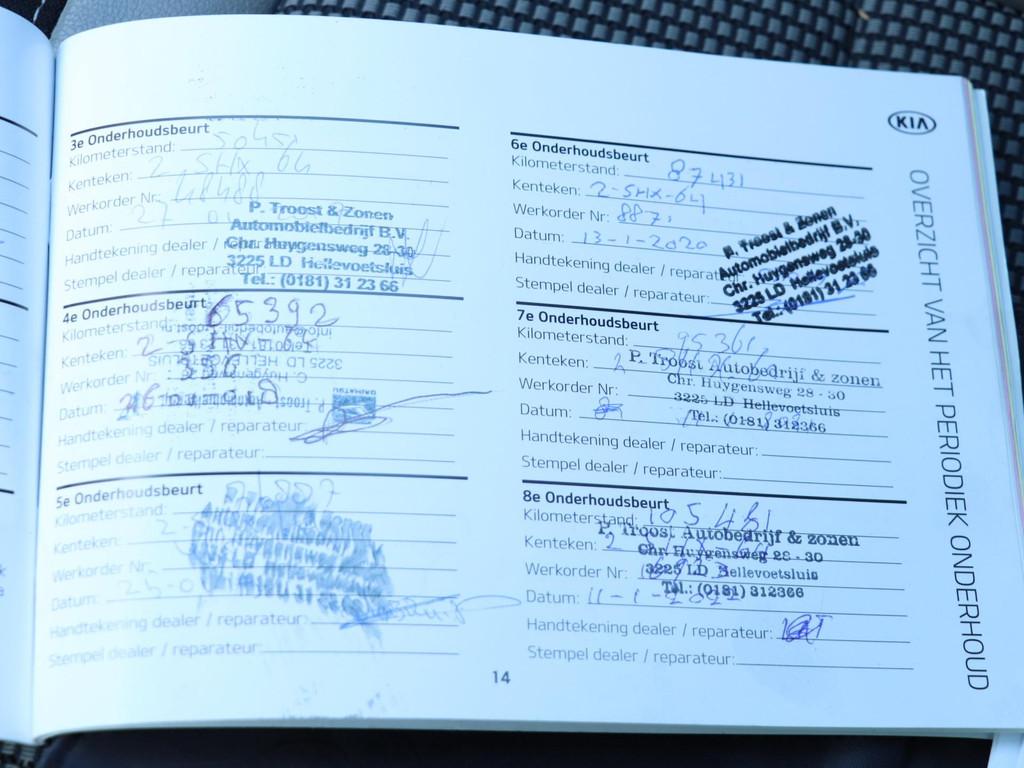 KIA
OVERZICHT VAN HET PERIODIEK ONDERHOUD
3e Onderhoudsbeurt
Kilometerstand:
Kenteken: 2-SHX-64
Werkorder Nr:
Datum: 27
Handtekening dealer /
Stempel dealer / reparateur
P. Troost & Zonen
Automobielbedrijf B.V.
Chr. Huygensweg 28-30
3225 LD Hellevoetsluis
Tel.: (0181) 31 23 66
4e Onderhoudsbeurt
Kilometerstand: 65392
Kenteken: 2
Werkorder Nr:
Datum:
3225 LD
Handtekening dealer / reparateur:
Stempel dealer / reparateur:
5e Onderhoudsbeurt
Kilometerstand:
Kenteken: 2
Werkorder Nr:
Datum:
Handtekening dealer / reparateur:
Stempel dealer / reparateur:
6e Onderhoudsbeurt
Kilometerstand: 87431
Kenteken: 2-SHX-64
Werkorder Nr: 887
Datum: 13-1-2020
Handtekening dealer / reparat
Stempel dealer / reparateur:
P. Troost & Zonen
Automobielbedrijf B.V.
Chr. Huygensweg 28-30
3225 LD Hellevoetsluis
Tel.: (0181) 31 23 66
7e Onderhoudsbeurt
Kilometerstand: 95361
Kenteken: 2
Werkorder Nr:
Datum:
P. Troost Autobedrijf & zonen
Chr. Huygensweg 28 - 30
3225 LD Hellevoetsluis
Tel.: (0181) 312366
Handtekening dealer / reparateur:
Stempel dealer / reparateur:
8e Onderhoudsbeurt
Kilometerstand: 105481
Kenteken: 2
Werkorder Nr:
Datum: 11-1-2022
P. Troost Autobedrijf & zonen
Chr. Huygensweg 28 - 30
3225 LD Hellevoetsluis
Tel.: (0181) 312366
Handtekening dealer / reparateur:
Stempel dealer / reparateur:
14